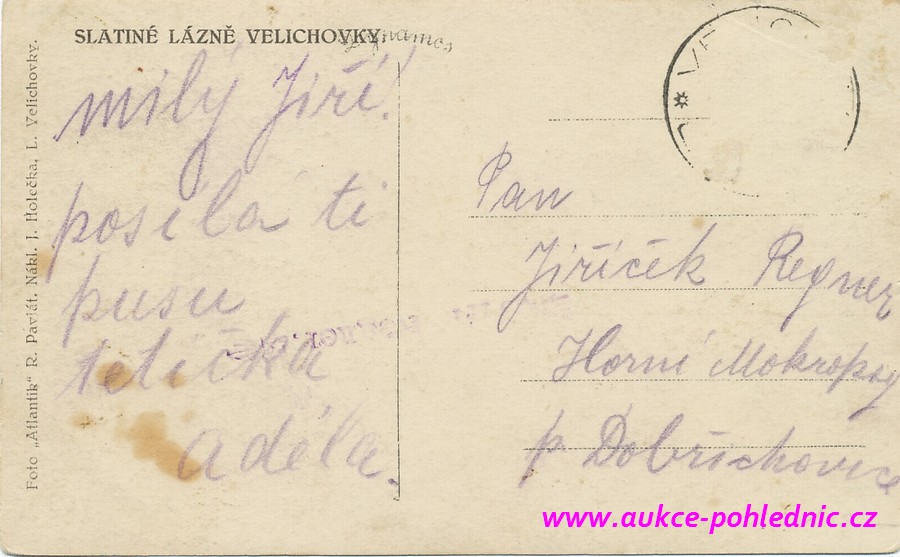 SLATINÉ LÁZNĚ VELICHOVKY.
milý Jiří!
posílá ti
pusu
tetička
adéla.
Pan
Jiříček Regner
Horní Mokropsy
p. Dobřichovice
Foto „Atlantik“ R. Pavját. Nákl. J. Holečka, L. Velichovky.
www.aukce-pohlednic.cz